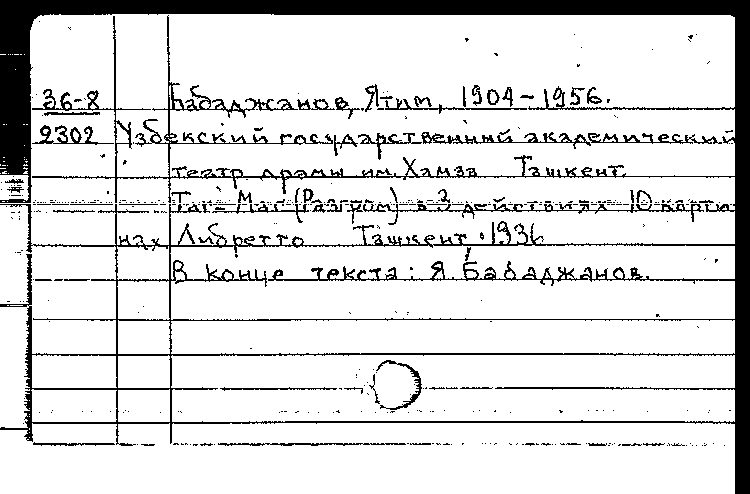 36-8 Бабаджанов, Ятим, 1904-1956.
2302 Узбекский государственный академический
театр драмы им. Хамза Ташкент.
Таг-Маг (Разгром) в 3 действиях 10 карти
нах. Либретто Ташкент, 1936
В конце текста: Я. Бабаджанов.